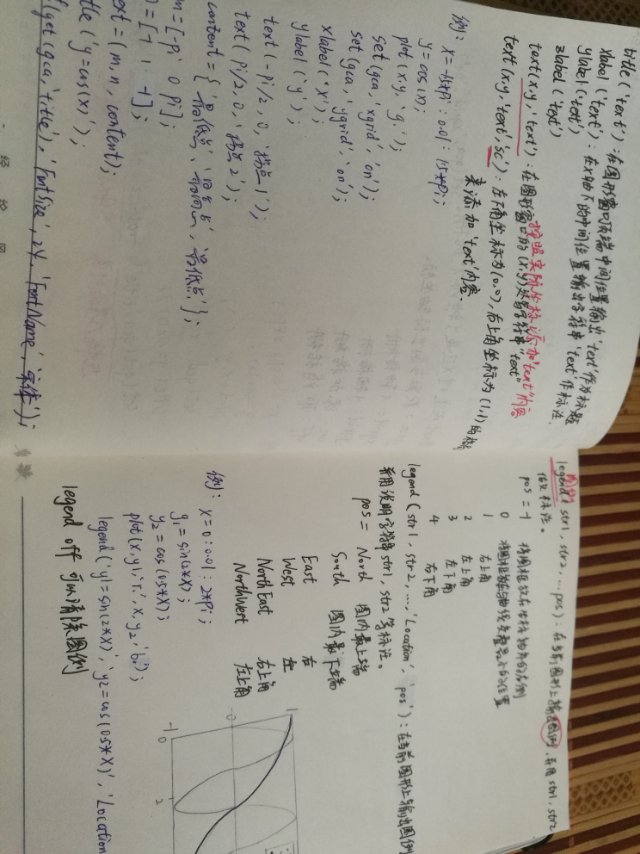 title('text'):在图形窗口顶端中间位置输出'text'作为标题
xlabel('text'):在x轴下的中间位置输出字符串'text'作标注.
ylabel('text')
zlabel('text')
按照实际坐标添加"text"内容
text(x,y,'text'):在图形窗口的(x,y)处写字符串"text"
text(x,y,'text','sc'):左下角坐标为(0,0),右上角坐标为(1,1)的
来添加'text'内容.
例: x=-1.5*pi:0.01:1.5*pi;
y=cos(x);
plot(x,y,'g.');
set(gca,'xgrid','on');
set(gca,'ygrid','on');
xlabel('x');
ylabel('y');
text(-pi/2,0,'拐点1');
text(pi/2,0,'拐点2');
content={'最低点','最高点','最低点'};
m=[-pi 0 pi];
n=[-1 1 -1];
text=(m,n,content);
title('y=cos(x)');
(get(gca,'title'),'FontSize',24,'FontName','宋体');
legend(str1,str2,...,pos):在当前图形上输出图例,并用str1,str2
做标注。
pos=-1
0
1 右上角
2 左上角
3 左下角
4 右下角
legend(str1,str2,...,'Location','pos'):在当前图形上输出图例
并用说明字符串str1,str2等标注。
pos= North 图内最上端
South 图内最下端
East 右
West 左
NorthEast 右上角
Northwest 左上角
例: x=0:0.01:2*pi;
y1=sin(2*x);
y2=cos(0.5*x);
plot(x,y1,'r.',x,y2,'b.');
legend('y1=sin(2*x)','y2=cos(0.5*x)','Location
legend off 可以清除图例
1
0
-1
0
2